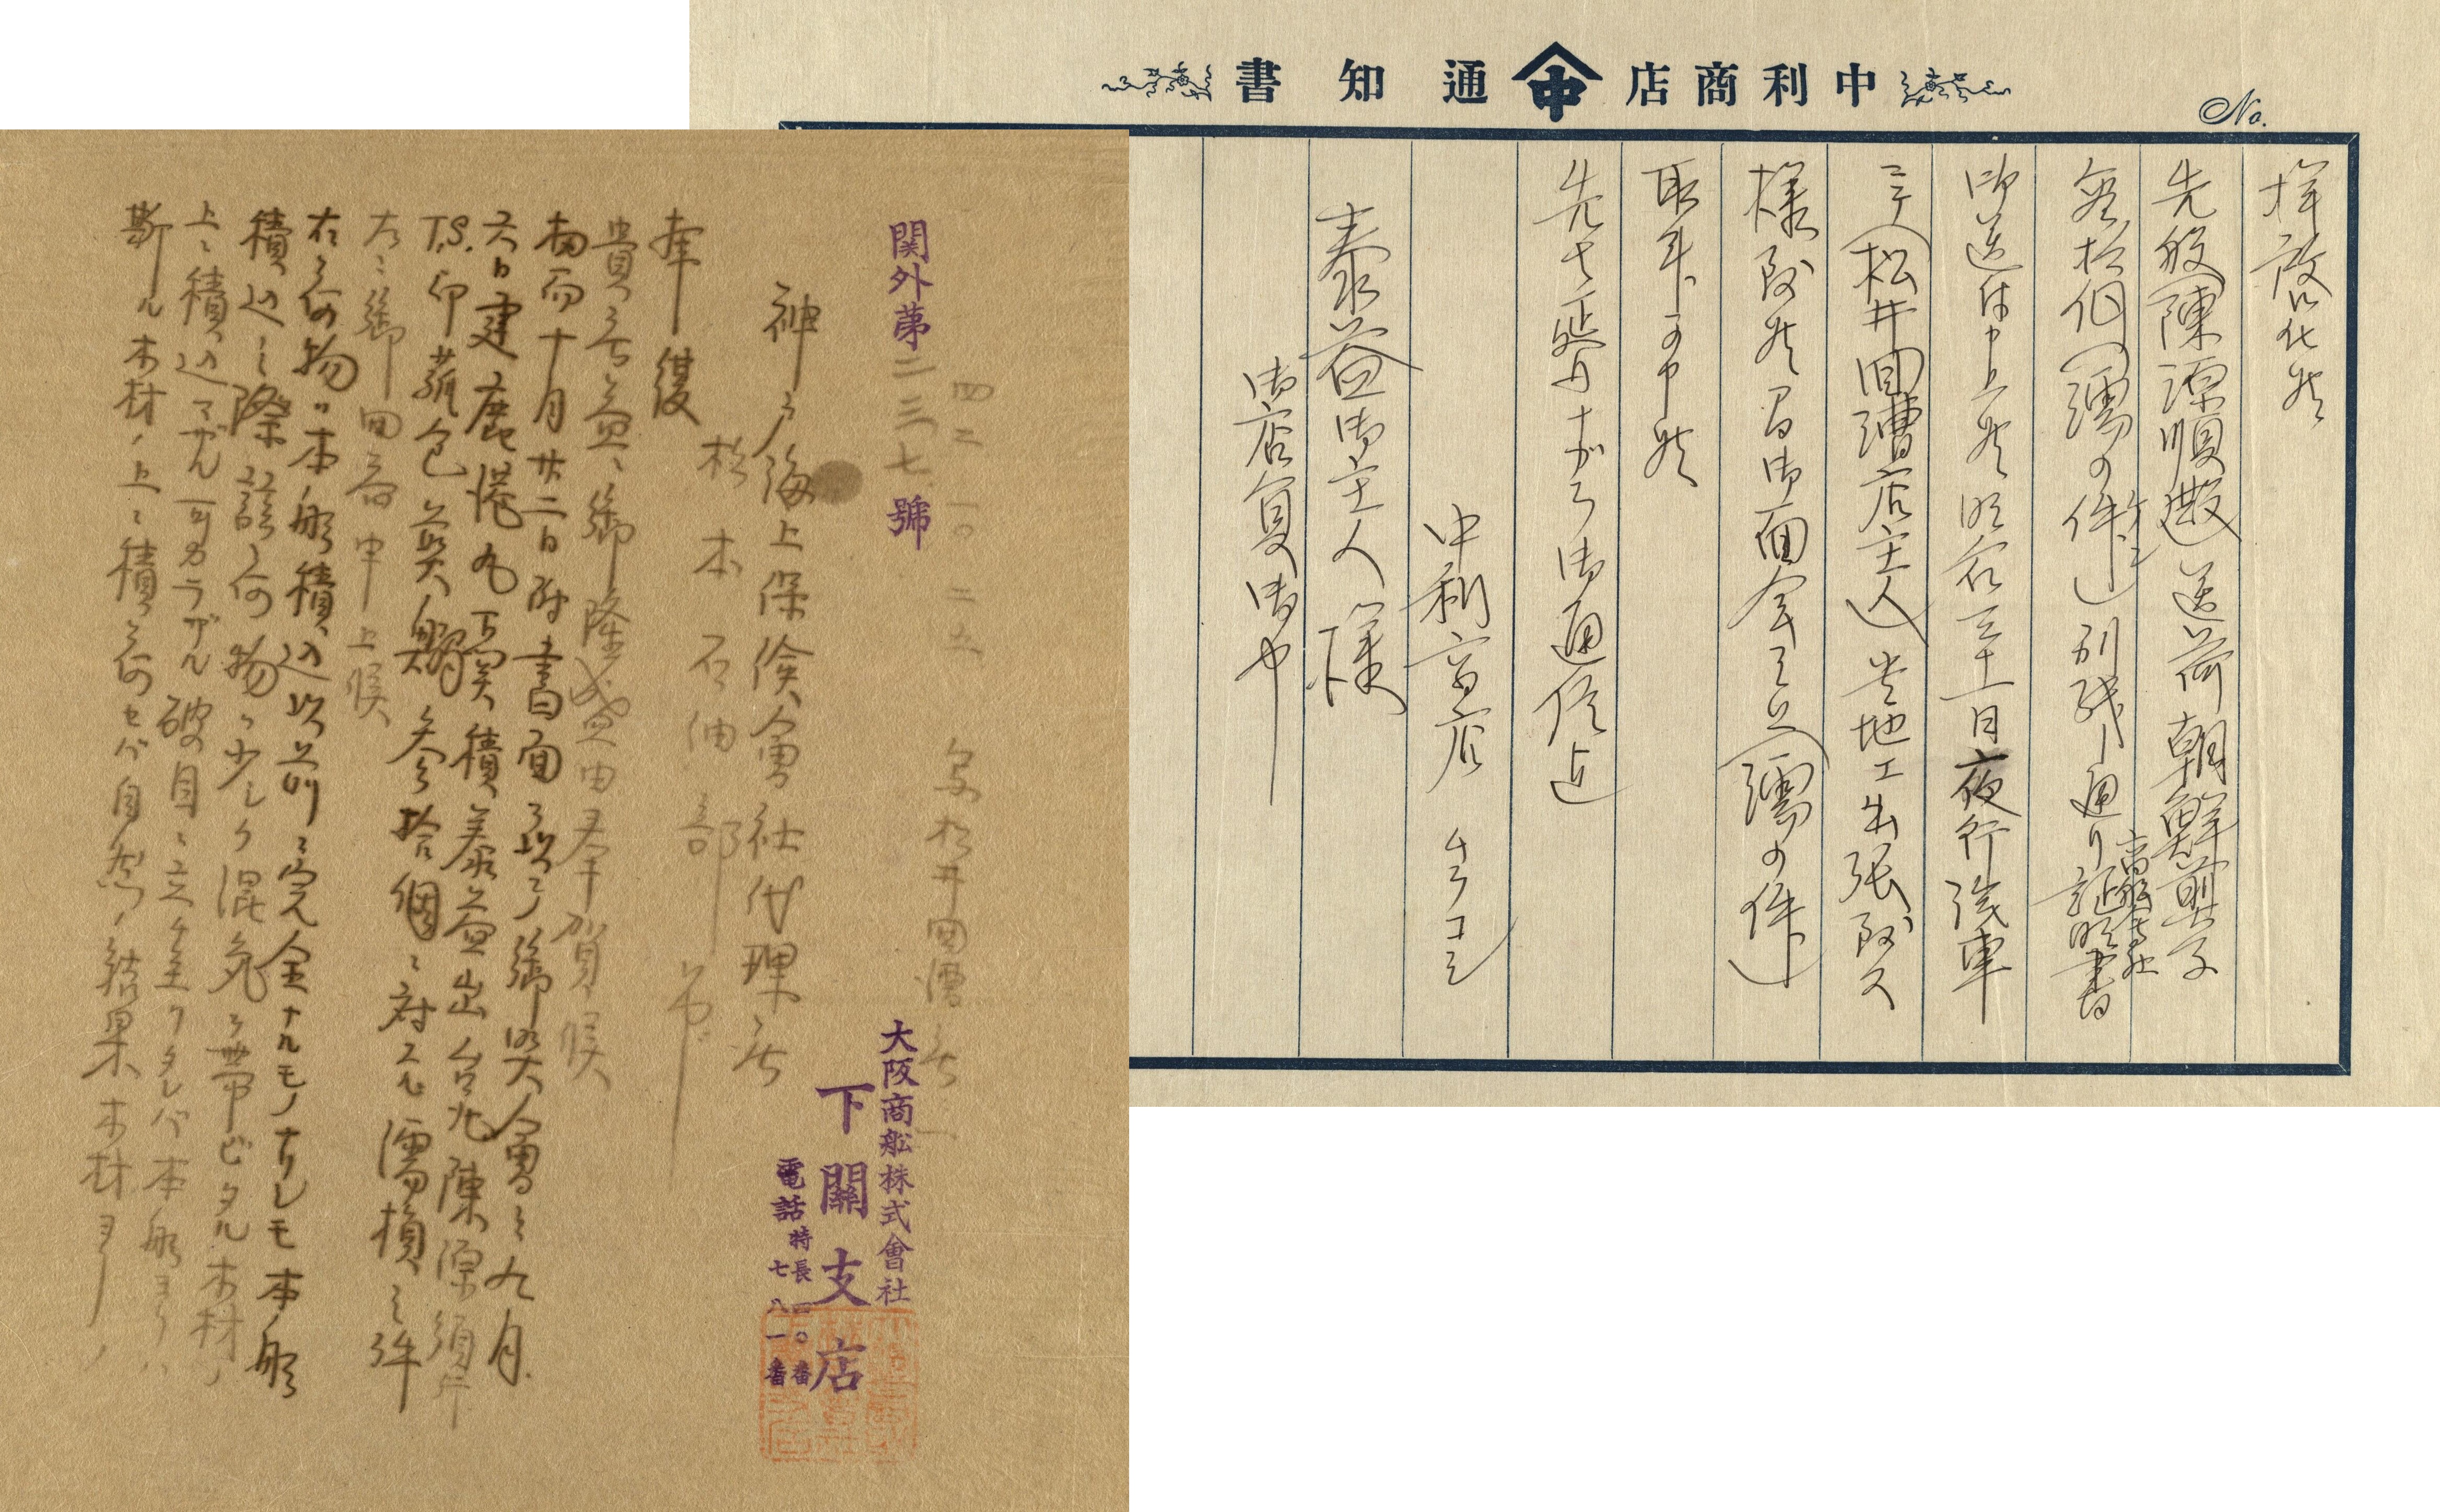 中利商店 中 通知書
No.
拝啓仕候
先般(陳源順殿)送荷朝鮮煎子
参拾個(濡の件)別紙ノ通り証明書
商船会社
御送付申上候明后三十一日夜行汽車
ニテ(松井回漕店主人)貴地エ出張致ス
様致候間御面会之上(濡の件)
取斗下可申候
先ハ延引ナガラ御通信迄
中利商店
泰益御主人様
御店員御中
関外第二三七號
四二 一〇 二五
松井回漕店
大阪商船株式會社
下關支店
電話 特長 一〇番
七八一番
神戸海上保険會社代理店
松本石油部 御中
拝復
貴店益御隆盛之由奉賀候
扨而十月廿二日附書面ヲ以テ御照會之九月
六日建鹿港丸下関積泰益出台九陳源順行
T.S.印蓙包煎鰯参拾個ニ対スル濡損之件
左ニ御回答申上候
右荷物ハ本船積込以前ニ完全ナルモノナリシモ本船
積込之際該荷物ハ少シク混気ヲ帯ビタル木材ノ
上ニ積込マザル可カラザル破目ニ立至リタレバ本船ヨリハ
斯ル木材ノ上ニ積荷セバ自然ノ結果木材ヨリノ